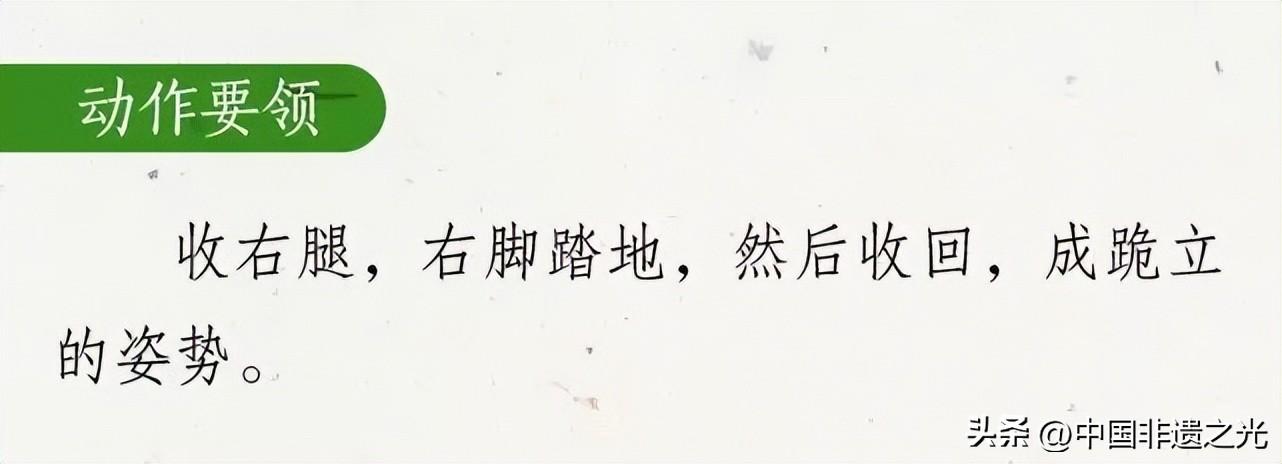 动作要领
收右腿，右脚踏地，然后收回，成跪立
的姿势。
头条 @中国非遗之光